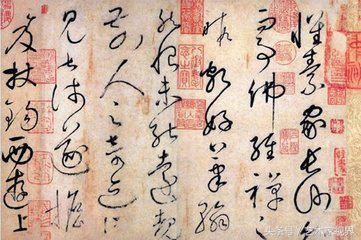 懷素家長沙
事佛經禪之
暇頗好筆翰
然恨未能遠覩
前人之奇迹所
見甚淺遂擔
笈杖錫西遊上
头条号 / 艺术家视界